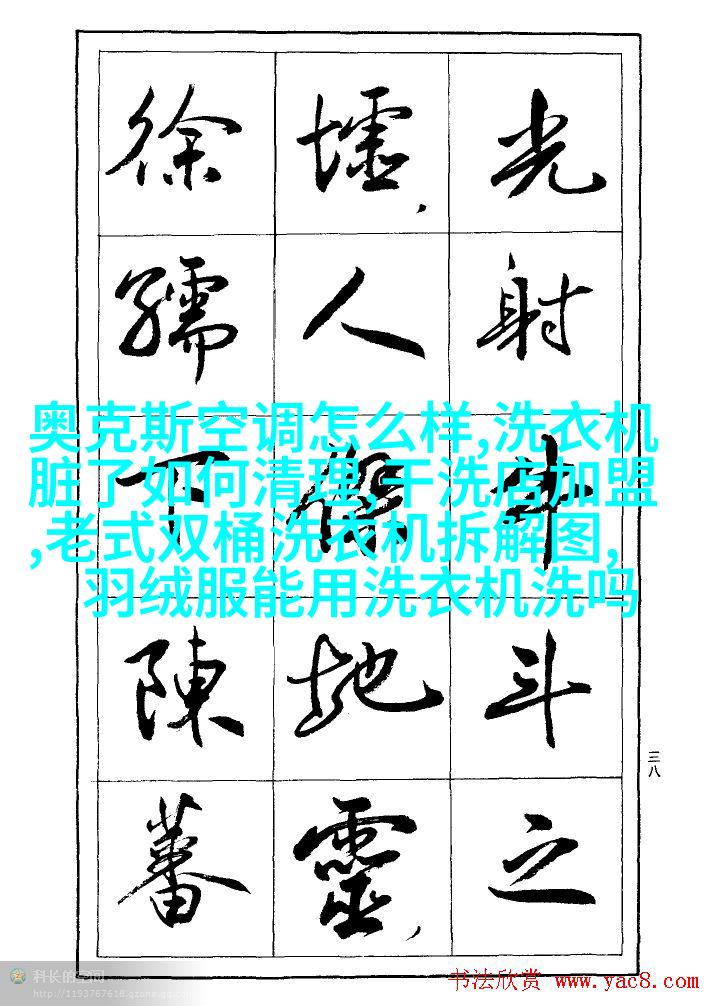 光射牛斗之
墟,人傑地靈,
徐孺下陳蕃
奥克斯空调怎么样,洗衣机
脏了如何清理,干洗店加盟
,老式双桶洗衣机拆解图,
羽绒服能用洗衣机洗吗
三八
科长的空间
http://1193767618.qzone.qq.com
书法欣赏 www.yac8.com